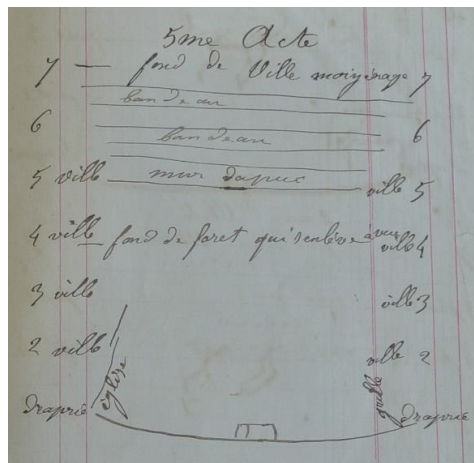 5me Acte
7 — fond de Ville moiyenage 7
bandeau
6 bandeau 6
5 ville mur dapuc ville 5
4 ville fond de foret qui s'enlève ville 4
3 ville ville 3
2 ville ville 2
église
draprie draprie